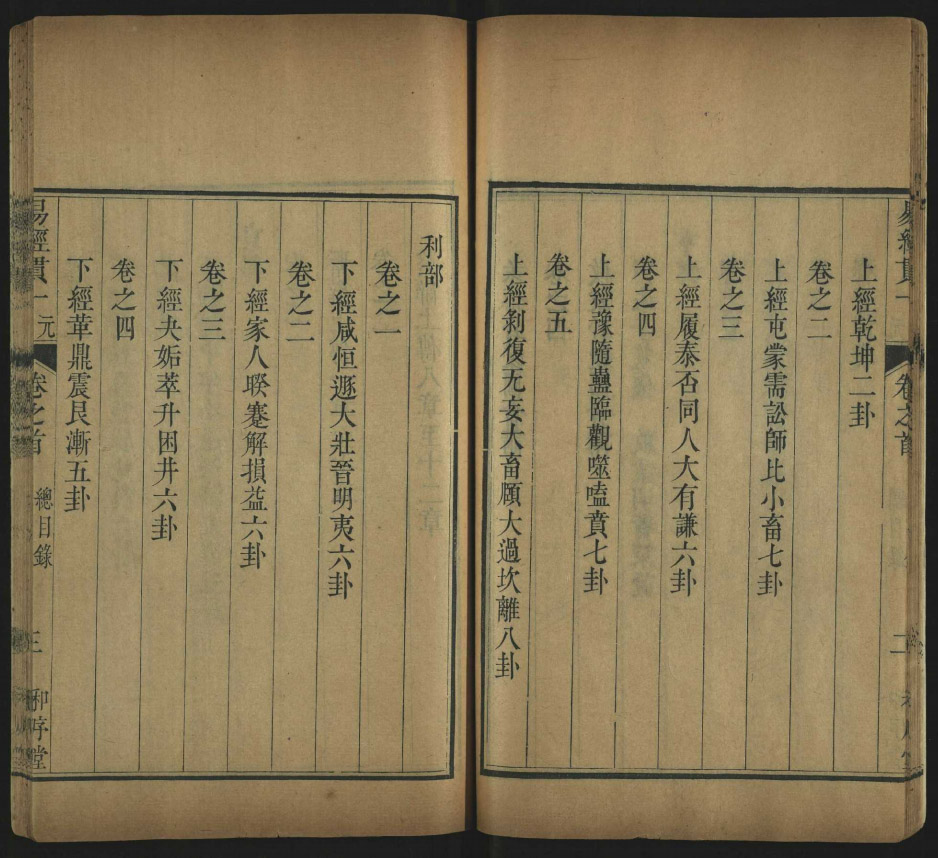 上經乾坤二卦
卷之二
上經屯蒙需訟師比小畜七卦
卷之三
上經履泰否同人大有謙六卦
卷之四
上經豫隨蠱臨觀噬嗑賁七卦
卷之五
上經剝復无妄大畜頤大過坎離八卦
利部
卷之一
下經咸恒遯大壯晉明夷六卦
卷之二
下經家人睽蹇解損益六卦
卷之三
下經夬姤萃升困井六卦
卷之四
下經革鼎震艮漸五卦
易經貫一 元 卷之首 總目錄 三 和序堂